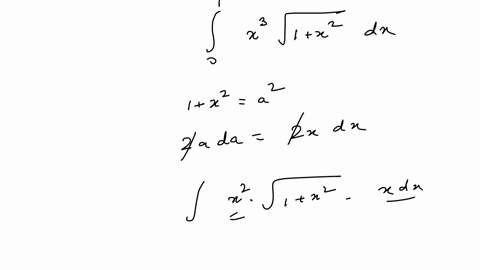 ∫₀¹ x³ √(1+x²) dx
1+x² = a²
2a da = 2x dx
∫ x² · √(1+x²) · x dx